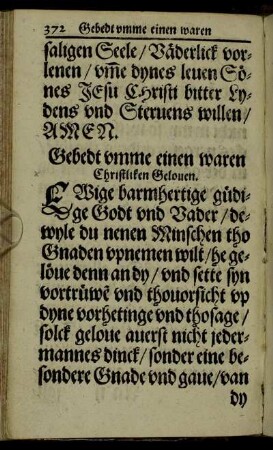 372 Gebedt vmme einen waren
saligen Seele / Väderlick vor-
lenen / vm̄e dynes leuen Sö-
nes JEsu CHristi bitter Ly-
dens vnd Steruens willen /
AMEN.
Gebedt vmme einen waren
Christliken Gelouen.
EWige barmhertige güdi-
ge Godt vnd Vader / de-
wyle du nenen Minschen tho
Gnaden vpnemen wilt / he ge-
löue denn an dy / vnd sette syn
vortrüwē vnd thouorsicht vp
dyne vorhetinge vnd thosage /
solck geloue auerst nicht jeder-
mannes dinck / sonder eine be-
sondere Gnade vnd gaue / van
dy